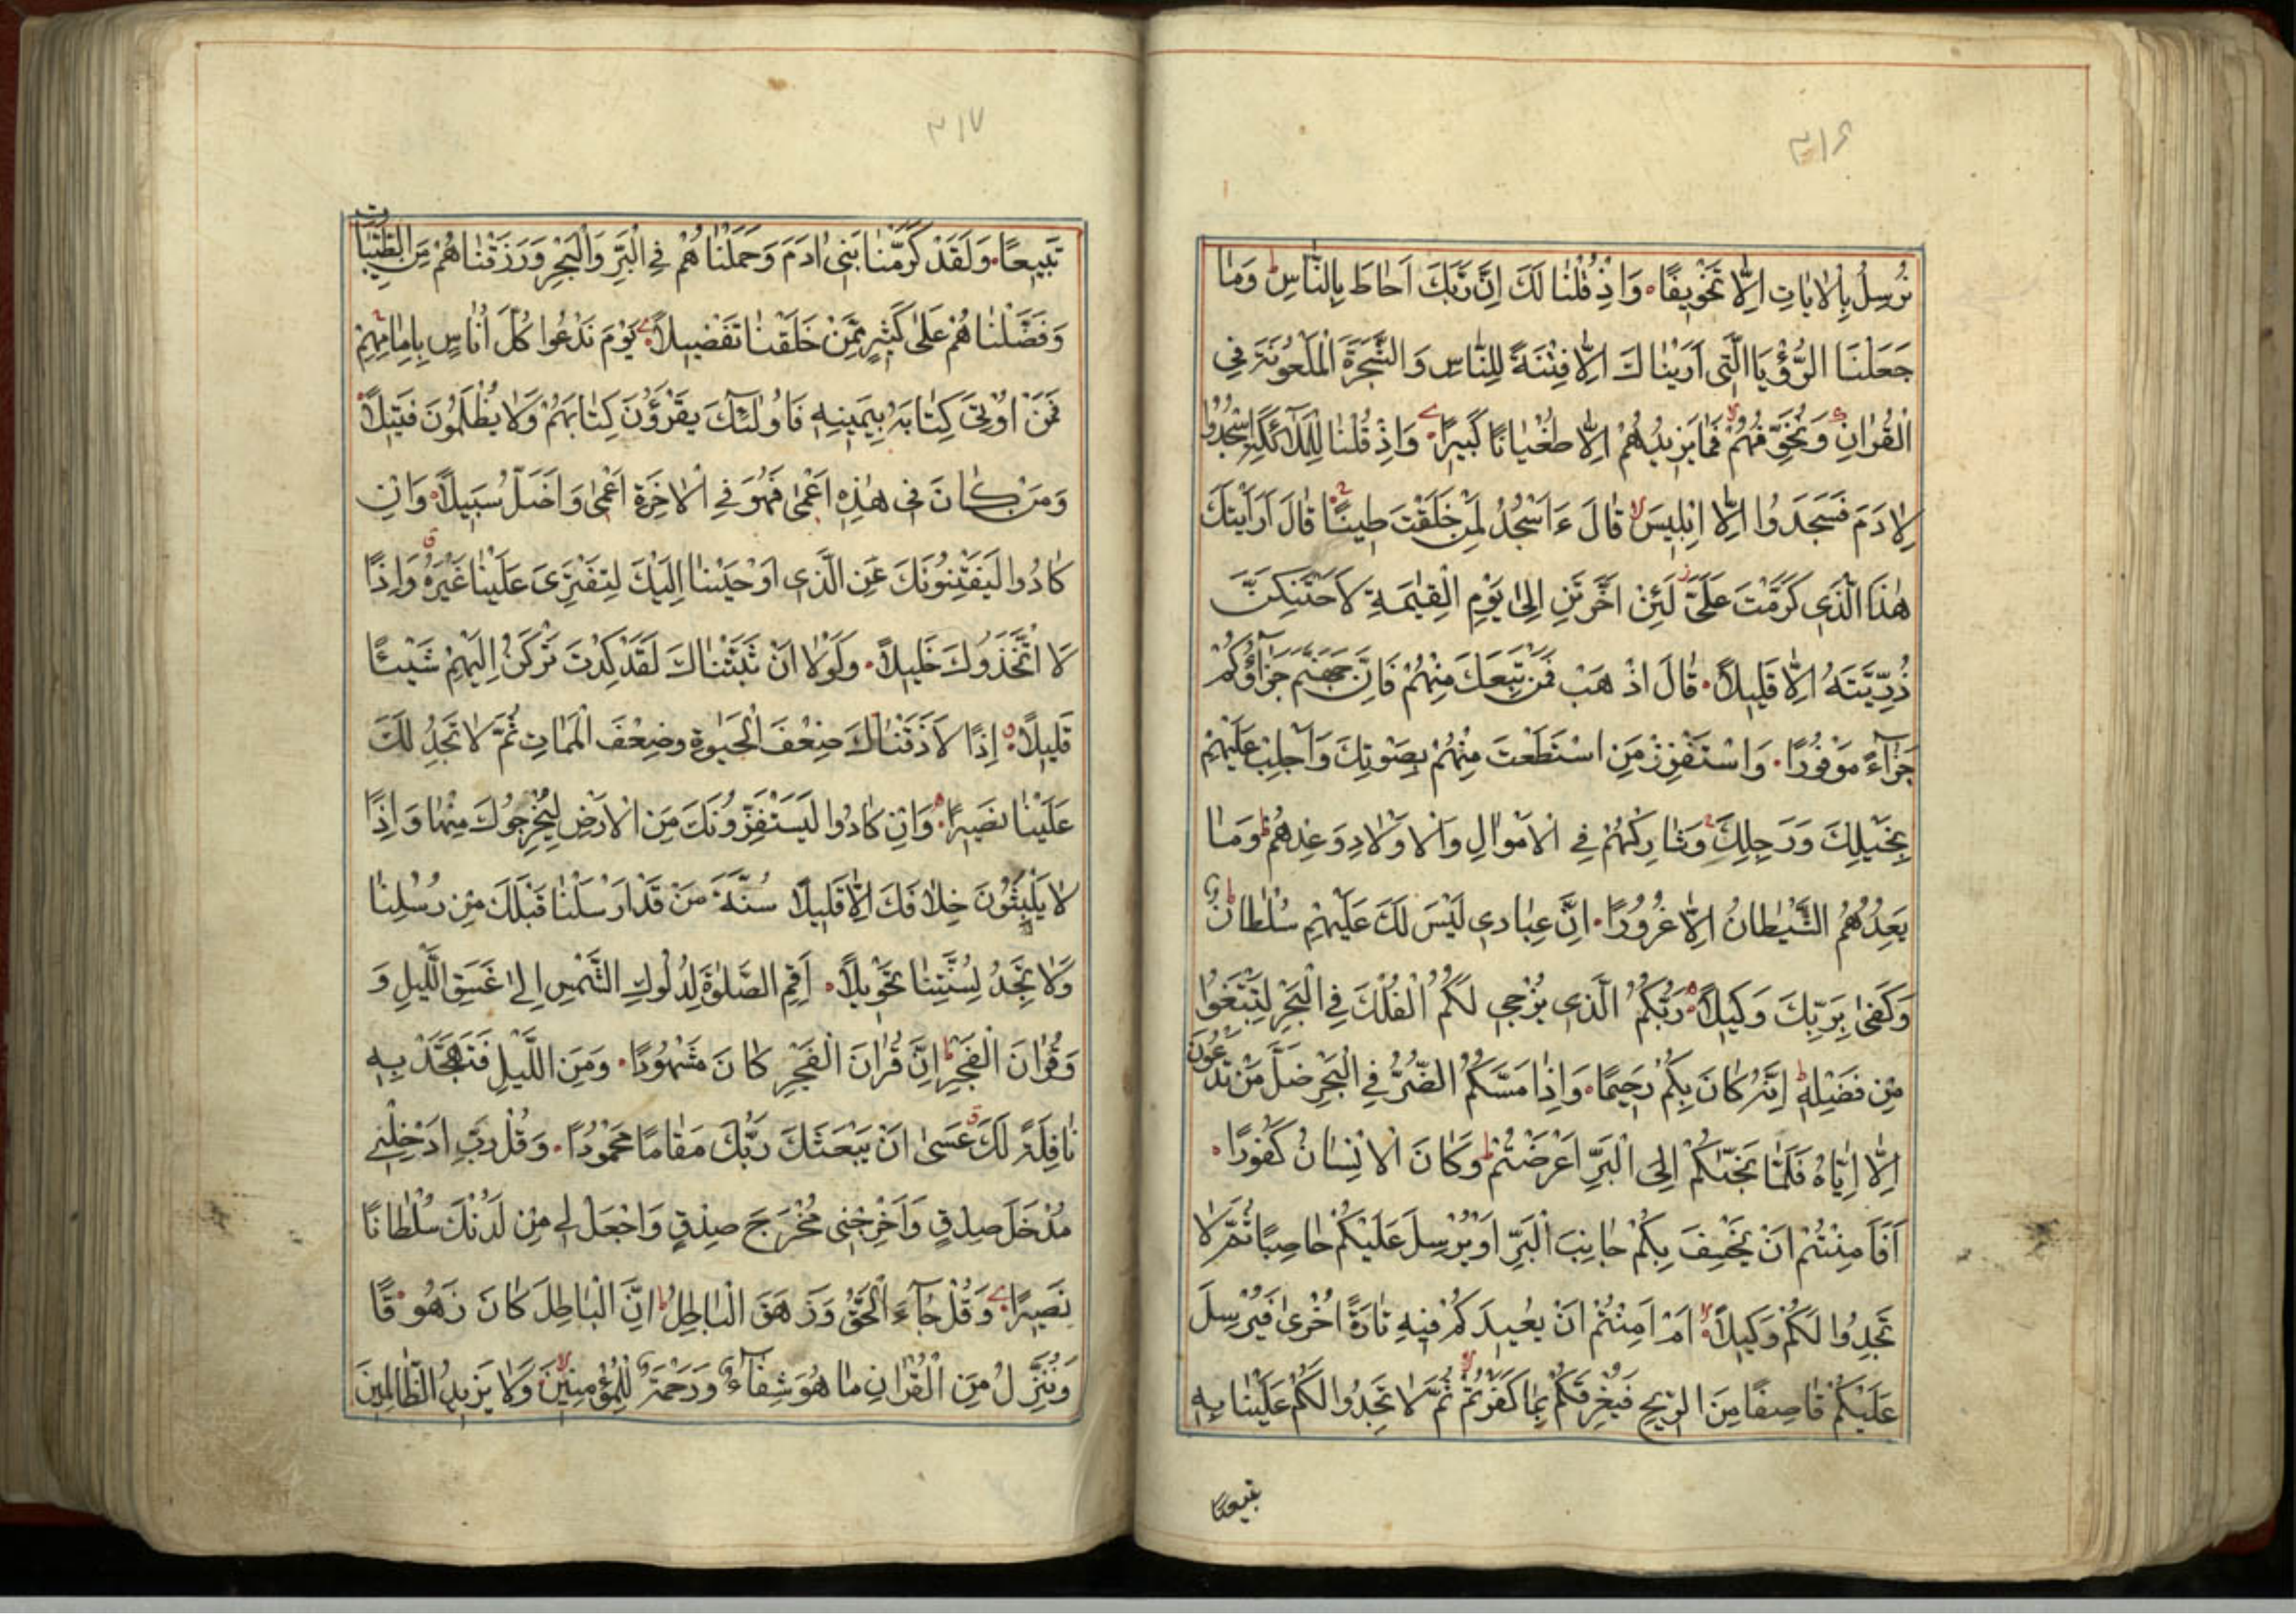 ٣١٦
نُرْسِلُ بِالْاٰيَاتِ اِلَّا تَخْوِيفًا وَاِذْ قُلْنَا لَكَ اِنَّ رَبَّكَ اَحَاطَ بِالنَّاسِ ط وَمَا
جَعَلْنَا الرُّؤْيَا الَّتِى اَرَيْنَاكَ اِلَّا فِتْنَةً لِلنَّاسِ وَالشَّجَرَةَ الْمَلْعُونَةَ فِى
الْقُرْاٰنِ وَنُخَوِّفُهُمْ لا فَمَا يَزِيدُهُمْ اِلَّا طُغْيَانًا كَبِيرًا وَاِذْ قُلْنَا لِلْمَلٰٓئِكَةِ اسْجُدُوا
لِاٰدَمَ فَسَجَدُوا اِلَّا اِبْلِيسَ لا قَالَ ءَاَسْجُدُ لِمَنْ خَلَقْتَ طِينًا قَالَ اَرَاَيْتَكَ
هٰذَا الَّذِى كَرَّمْتَ عَلَىَّ ز لَئِنْ اَخَّرْتَنِ اِلىٰ يَوْمِ الْقِيٰمَةِ لَاَحْتَنِكَنَّ
ذُرِّيَّتَهُ اِلَّا قَلِيلًا قَالَ اذْهَبْ فَمَنْ تَبِعَكَ مِنْهُمْ فَاِنَّ جَهَنَّمَ جَزَآؤُكُمْ
جَزَآءً مَوْفُورًا وَاسْتَفْزِزْ مَنِ اسْتَطَعْتَ مِنْهُمْ بِصَوْتِكَ وَاَجْلِبْ عَلَيْهِمْ
بِخَيْلِكَ وَرَجِلِكَ وَشَارِكْهُمْ فِى الْاَمْوَالِ وَالْاَوْلَادِ وَعِدْهُمْ ط وَمَا
يَعِدُهُمُ الشَّيْطَانُ اِلَّا غُرُورًا اِنَّ عِبَادِى لَيْسَ لَكَ عَلَيْهِمْ سُلْطَانٌ ط
وَكَفىٰ بِرَبِّكَ وَكِيلًا رَبُّكُمُ الَّذِى يُزْجِى لَكُمُ الْفُلْكَ فِى الْبَحْرِ لِتَبْتَغُوا
مِنْ فَضْلِهِ ط اِنَّهُ كَانَ بِكُمْ رَحِيمًا وَاِذَا مَسَّكُمُ الضُّرُّ فِى الْبَحْرِ ضَلَّ مَنْ تَدْعُونَ
اِلَّا اِيَّاهُ فَلَمَّا نَجّٰىكُمْ اِلَى الْبَرِّ اَعْرَضْتُمْ ط وَكَانَ الْاِنْسَانُ كَفُورًا
اَفَاَمِنْتُمْ اَنْ يَخْسِفَ بِكُمْ جَانِبَ الْبَرِّ اَوْ يُرْسِلَ عَلَيْكُمْ حَاصِبًا ثُمَّ لَا
تَجِدُوا لَكُمْ وَكِيلًا لا اَمْ اَمِنْتُمْ اَنْ يُعِيدَكُمْ فِيهِ تَارَةً اُخْرىٰ فَيُرْسِلَ
عَلَيْكُمْ قَاصِفًا مِنَ الرِّيحِ فَيُغْرِقَكُمْ بِمَا كَفَرْتُمْ لا ثُمَّ لَا تَجِدُوا لَكُمْ عَلَيْنَا بِهِ
تبيعًا
٣١٧
تَبِيعًا وَلَقَدْ كَرَّمْنَا بَنِى اٰدَمَ وَحَمَلْنَاهُمْ فِى الْبَرِّ وَالْبَحْرِ وَرَزَقْنَاهُمْ مِنَ الطَّيِّبَاتِ
وَفَضَّلْنَاهُمْ عَلىٰ كَثِيرٍ مِمَّنْ خَلَقْنَا تَفْضِيلًا يَوْمَ نَدْعُوا كُلَّ اُنَاسٍ بِاِمَامِهِمْ
فَمَنْ اُوتِىَ كِتَابَهُ بِيَمِينِهِ فَاُولٰٓئِكَ يَقْرَؤُنَ كِتَابَهُمْ وَلَا يُظْلَمُونَ فَتِيلًا
وَمَنْ كَانَ فِى هٰذِهِ اَعْمىٰ فَهُوَ فِى الْاٰخِرَةِ اَعْمىٰ وَاَضَلُّ سَبِيلًا وَاِنْ
كَادُوا لَيَفْتِنُونَكَ عَنِ الَّذِى اَوْحَيْنَا اِلَيْكَ لِتَفْتَرِىَ عَلَيْنَا غَيْرَهُ ق وَاِذًا
لَاتَّخَذُوكَ خَلِيلًا وَلَوْلَا اَنْ ثَبَّتْنَاكَ لَقَدْ كِدْتَ تَرْكَنُ اِلَيْهِمْ شَيْئًا
قَلِيلًا اِذًا لَاَذَقْنَاكَ ضِعْفَ الْحَيٰوةِ وَضِعْفَ الْمَمَاتِ ثُمَّ لَا تَجِدُ لَكَ
عَلَيْنَا نَصِيرًا وَاِنْ كَادُوا لَيَسْتَفِزُّونَكَ مِنَ الْاَرْضِ لِيُخْرِجُوكَ مِنْهَا وَاِذًا
لَا يَلْبَثُونَ خِلَافَكَ اِلَّا قَلِيلًا سُنَّةَ مَنْ قَدْ اَرْسَلْنَا قَبْلَكَ مِنْ رُسُلِنَا
وَلَا تَجِدُ لِسُنَّتِنَا تَحْوِيلًا اَقِمِ الصَّلٰوةَ لِدُلُوكِ الشَّمْسِ اِلىٰ غَسَقِ اللَّيْلِ وَ
وَقُرْاٰنَ الْفَجْرِ ط اِنَّ قُرْاٰنَ الْفَجْرِ كَانَ مَشْهُودًا وَمِنَ اللَّيْلِ فَتَهَجَّدْ بِهِ
نَافِلَةً لَكَ ق عَسىٰ اَنْ يَبْعَثَكَ رَبُّكَ مَقَامًا مَحْمُودًا وَقُلْ رَبِّ اَدْخِلْنِى
مُدْخَلَ صِدْقٍ وَاَخْرِجْنِى مُخْرَجَ صِدْقٍ وَاجْعَلْ لِى مِنْ لَدُنْكَ سُلْطَانًا
نَصِيرًا وَقُلْ جَآءَ الْحَقُّ وَزَهَقَ الْبَاطِلُ ط اِنَّ الْبَاطِلَ كَانَ زَهُوقًا
وَنُنَزِّلُ مِنَ الْقُرْاٰنِ مَا هُوَ شِفَآءٌ وَرَحْمَةٌ لِلْمُؤْمِنِينَ لا وَلَا يَزِيدُ الظَّالِمِينَ